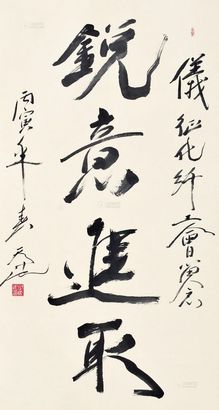 儀征化纤工會留念
銳意進取
丙寅年春